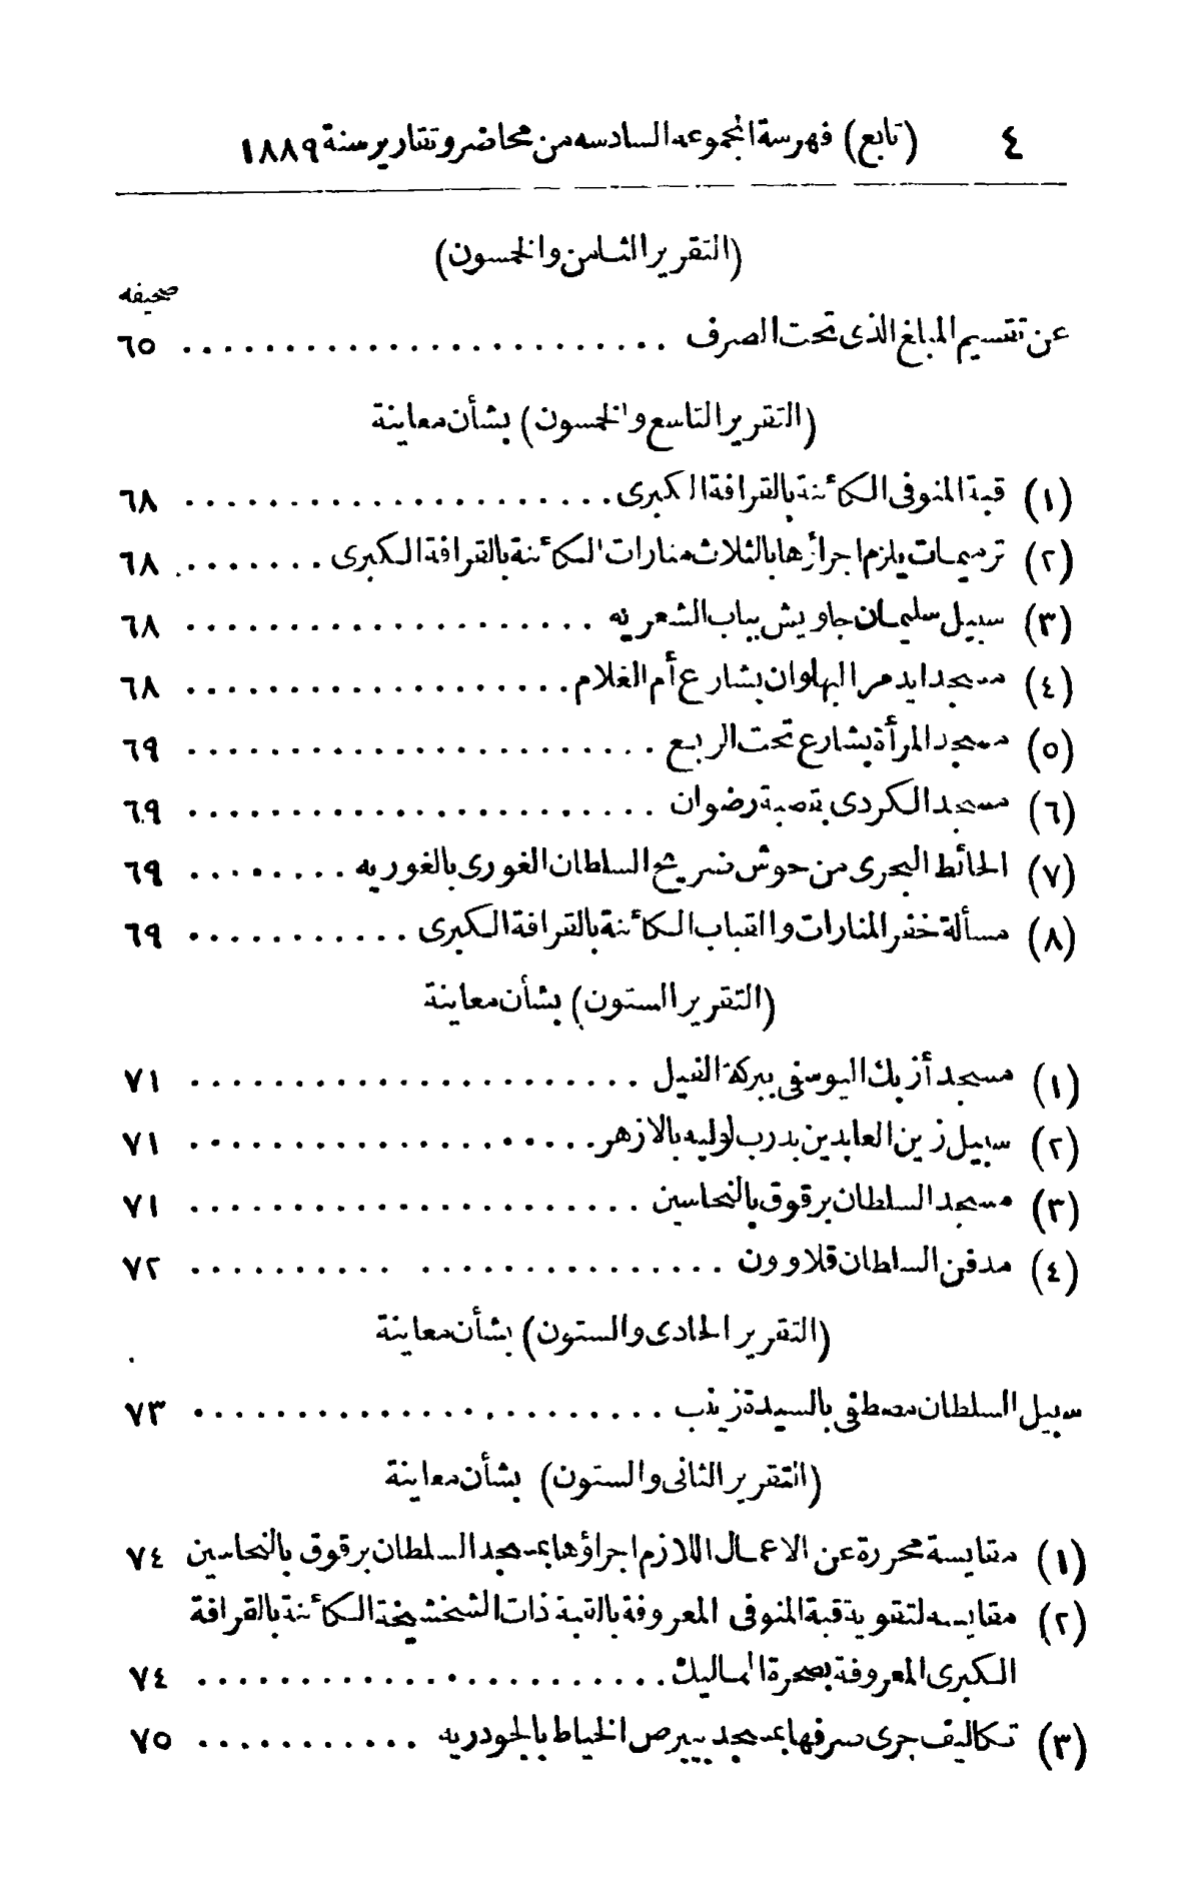 ٤ (تابع) فهرسة المجموعه السادسه من محاضر وتقارير سنة ١٨٨٩
(التقرير الثامن والخمسون)
صحيفه
عن تقسيم المبلغ الذى تحت الصرف ........................ ٦٥
(التقرير التاسع والخمسون) بشأن معاينة
(١) قبة المنوفى الكائنة بالقرافة الكبرى ..................... ٦٨
(٢) ترميمات يلزم اجرائها بالثلاث منارات الكائنة بالقرافة الكبرى ........ ٦٨
(٣) سبيل سليمان جاويش بباب الشعريه .................... ٦٨
(٤) مسجد ايدمر البهلوان بشارع أم الغلام ................... ٦٨
(٥) مسجد المرأة بشارع تحت الربع ....................... ٦٩
(٦) مسجد الكردى بقصبة رضوان ....................... ٦٩
(٧) الحائط البحرى من حوش ضريح السلطان الغورى بالغوريه ......... ٦٩
(٨) مسألة خفر المنارات والقباب الكائنة بالقرافة الكبرى ........... ٦٩
(التقرير الستون) بشأن معاينة
(١) مسجد أزبك اليوسفى ببركة الفيل ...................... ٧١
(٢) سبيل زين العابدين بدرب لوليه بالازهر .................... ٧١
(٣) مسجد السلطان برقوق بالنحاسين ...................... ٧١
(٤) مدفن السلطان قلاوون ......................... ٧٢
(التقرير الحادى والستون) بشأن معاينة
سبيل السلطان مصطفى بالسيدة زينب ....................... ٧٣
(التقرير الثانى والستون) بشأن معاينة
(١) مقايسة محررة عن الاعمال اللازم اجراؤها بمسجد السلطان برقوق بالنحاسين ٧٤
(٢) مقايسه لتقوية قبة المنوفى المعروفة بالقبة ذات الشخشيخة الكائنة بالقرافة
الكبرى المعروفة بصحرة المماليك ....................... ٧٤
(٣) تكاليف جرى صرفها بمسجد بيبرص الخياط بالجودريه ........... ٧٥